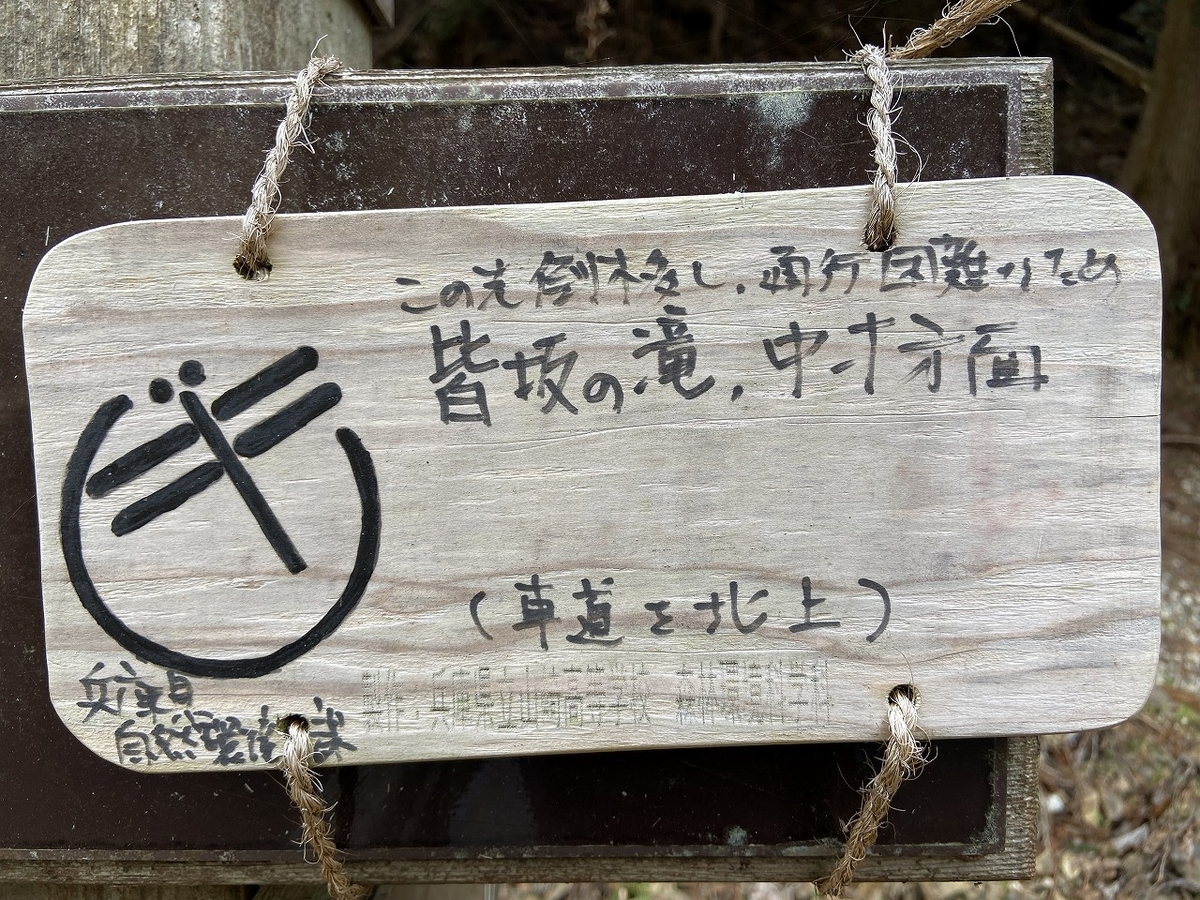 この先倒木多し、通行困難なため
皆坂の滝、中村方面
(車道を北上)
兵庫県
自然環境課
製作・兵庫県立山崎高等学校 森林環境科学科